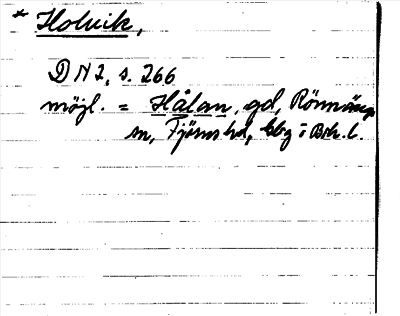 * Holvik,
DN 2, s. 266
möjl. = Hålan, gd, Rönnängs
sn, Tjörns hd, bbg i Boh. l.